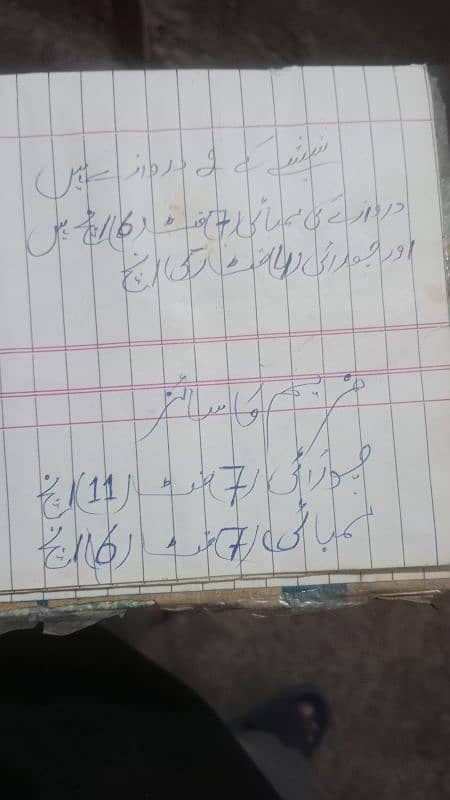 شیشے کے دروازے ہیں
دروازے کی لمبائی (7) فٹ (6) انچ ہیں
اور چوڑائی (4) فٹ انچ
فریم کا سائز
چوڑائی (7) فٹ (11) انچ
لمبائی (7) فٹ (6) انچ